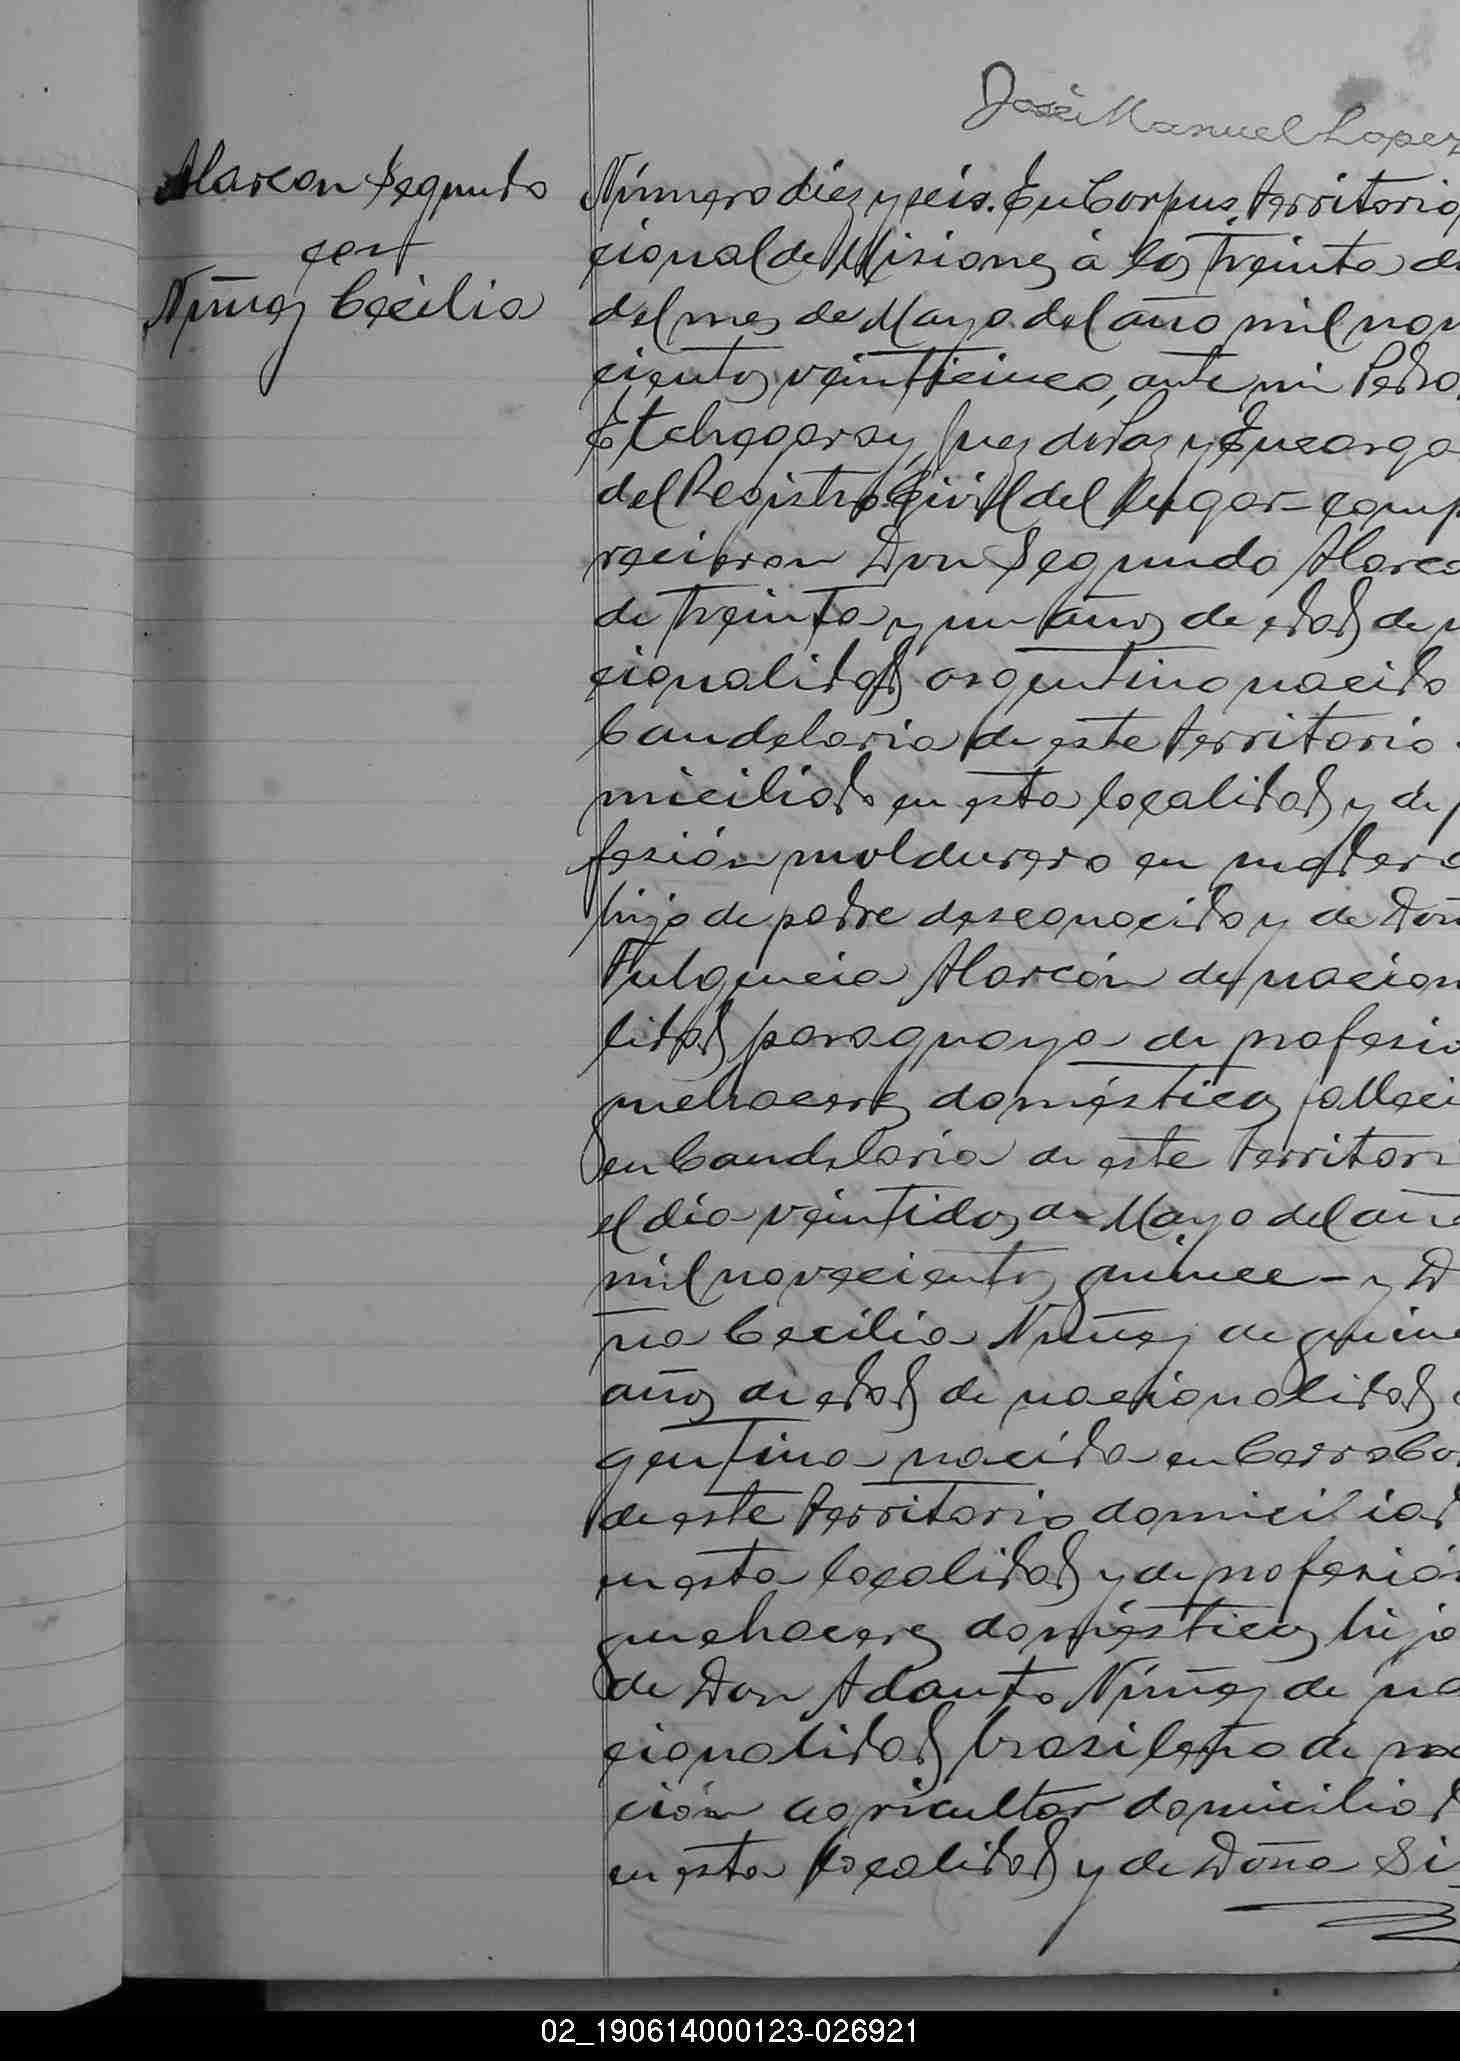 José Manuel Lopez
Alarcon Segundo
con
Núñez Cecilia
Número diez y seis. En Corpus, territorio
cional de Misiones á los treinta de
del mes de Mayo del año mil nov
cientos veinticinco, ante mi Pedro
Etchegaray, Juez de Paz y Encarga
del Registro Civil del lugar - comp
recieron Don Segundo Alarco
de treinta y un años de edad de n
cionalidad argentino nacido
Candelaria de este territorio
miciliado en esta localidad y de p
fesión moldurero en madera
hijo de padre desconocido y de Doñ
Fulgencia Alarcón de nacion
lidad paraguaya de profesio
quehaceres domésticos falleci
en Candelaria de este territori
el dia veintidos de Mayo del año
mil novecientos quince - y D
ña Cecilia Núñez de quinc
años de edad de nacionalidad a
gentina nacida en Cerro Cor
de este territorio domiciliad
en esta localidad y de profesión
quehaceres domésticos hija
de Don Adauto Núñez de na
cionalidad brasileño de
ción agricultor domiciliad
en esta localidad y de Doña Si
02_190614000123-026921